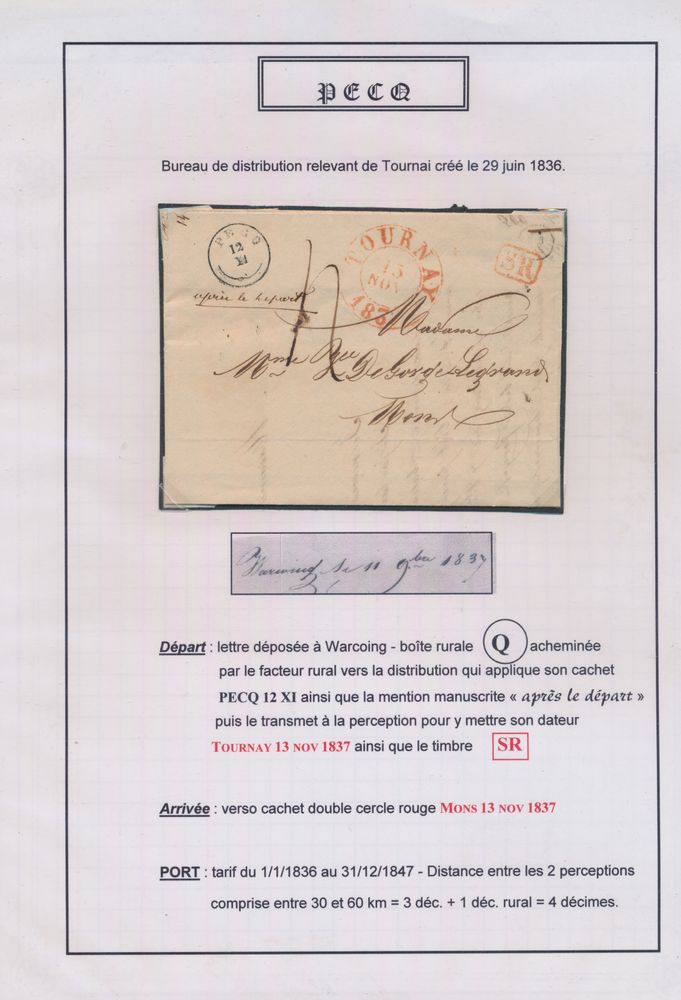 PECQ
Bureau de distribution relevant de Tournai créé le 29 juin 1836.
14
PECQ
12
XI
TOURNAY
13
NOV
1837
SR
après le départ
4
Madame
Mme Vve DeGorge Legrand
Mons
Warcoing le 11 9bre 1837
Départ : lettre déposée à Warcoing - boîte rurale Q acheminée
par le facteur rural vers la distribution qui applique son cachet
PECQ 12 XI ainsi que la mention manuscrite « après le départ »
puis le transmet à la perception pour y mettre son dateur
TOURNAY 13 NOV 1837 ainsi que le timbre SR
Arrivée : verso cachet double cercle rouge MONS 13 NOV 1837
PORT : tarif du 1/1/1836 au 31/12/1847 - Distance entre les 2 perceptions
comprise entre 30 et 60 km = 3 déc. + 1 déc. rural = 4 décimes.